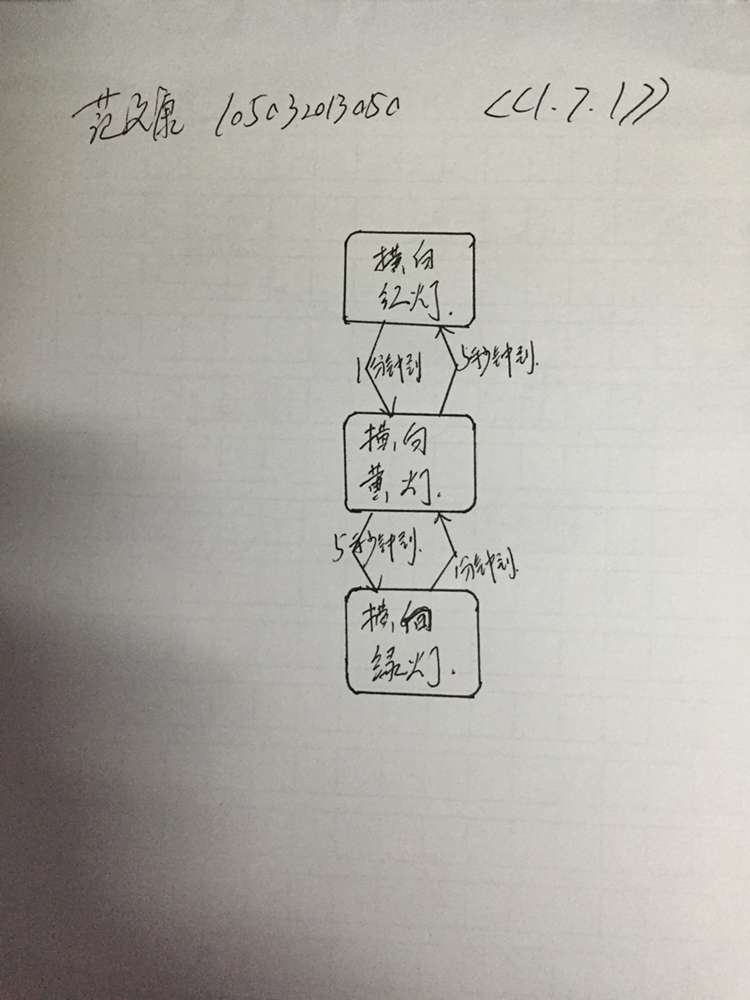 范文康 105032013050 <<1.7.1>>
横向
红灯.
1分钟到
5秒钟到.
横向
黄灯.
5秒钟到.
1分钟到.
横向
绿灯.